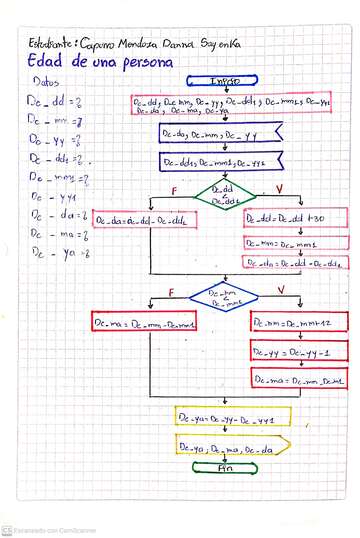 Estudiante: Capuño Mendoza Danna Sayenka
Edad de una persona
Datos
Dc_dd = ?
Dc_mm = ?
Dc_yy = ?
Dc_dd1 = ?
Dc_mm1 = ?
Dc_yy1
Dc_da = ?
Dc_ma = ?
Dc_ya = ?
Inicio
Dc_dd, Dc_mm, Dc_yy, Dc_dd1, Dc_mm1, Dc_yy1
Dc_da, Dc_ma, Dc_ya
Dc_da, Dc_mm, Dc_yy
Dc_dd1, Dc_mm1, Dc_yy1
Dc_dd
<
Dc_dd1
F
V
Dc_da = Dc_dd - Dc_dd1
Dc_dd = Dc_dd + 30
Dc_mm = Dc_mm1
Dc_da = Dc_dd - Dc_dd1
Dc_mm
<
Dc_mm1
F
V
Dc_ma = Dc_mm - Dc_mm1
Dc_mm = Dc_mm + 12
Dc_yy = Dc_yy - 1
Dc_ya = Dc_yy - Dc_yy1
Dc_ya, Dc_ma, Dc_da
Fin
CS Escaneado con CamScanner